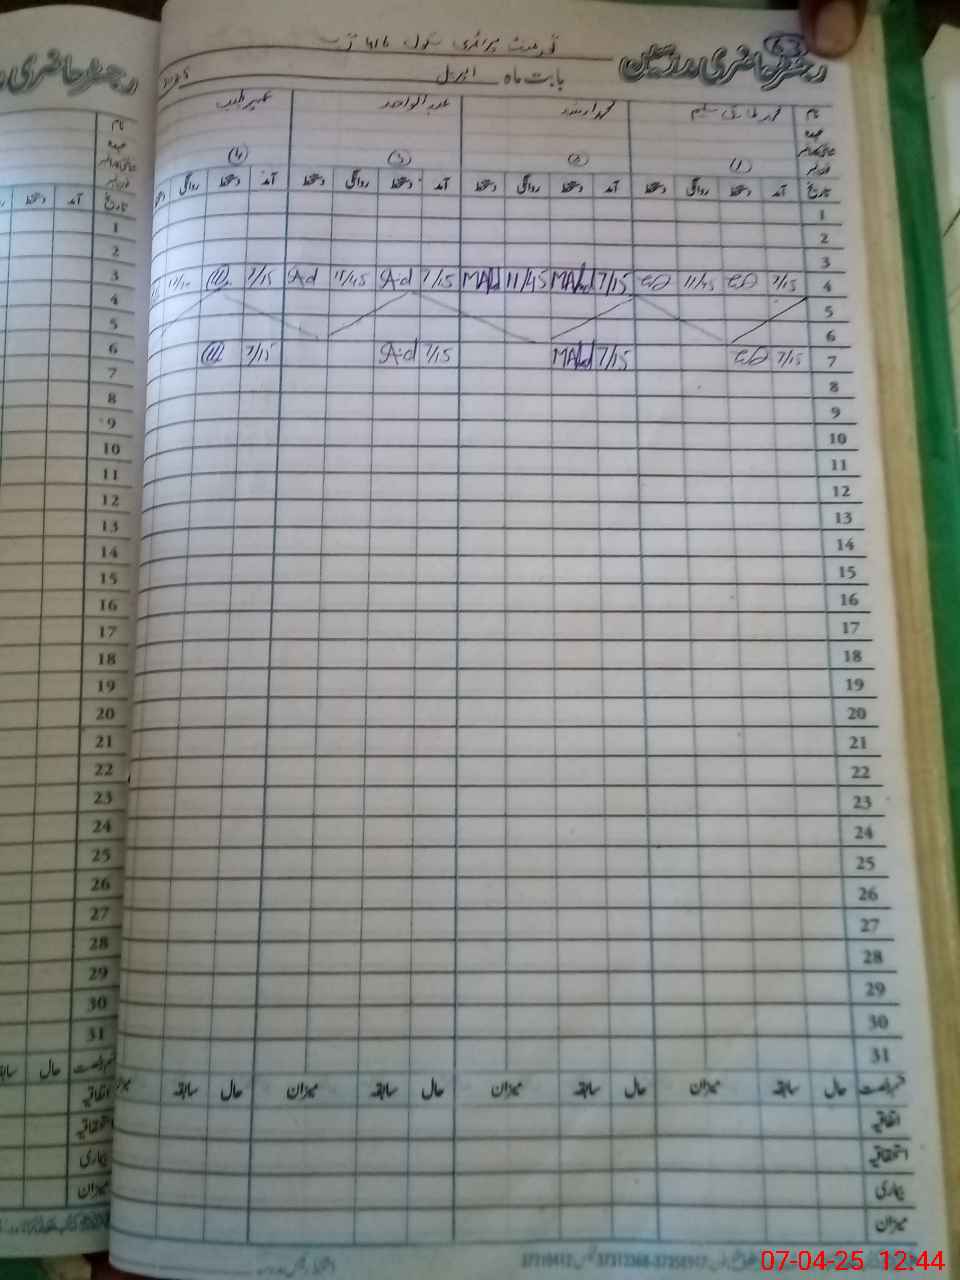 رجسٹر حاضری مدرسین
گورنمنٹ پرائمری سکول 416 گ ب
بابت ماہ اپریل 2025
نام محمد طارق سلیم محمد ارشد عبدالواحد عمیر طیب
عہدہ
(1) (2) (3) (4)
تاریخ آمد دستخط روانگی دستخط آمد دستخط روانگی دستخط آمد دستخط روانگی دستخط آمد دستخط روانگی
1
2
3
4 7/15 11/45 7/15 MAhd 11/45 MAhd 7/15 A.d 11/45 A.d 7/15
5
6
7 7/15 7/15 MAhd 7/15 A.d 7/15
8
9
10
11
12
13
14
15
16
17
18
19
20
21
22
23
24
25
26
27
28
29
30
31
قسم رخصت حال سابقہ میزان حال سابقہ میزان حال سابقہ میزان حال سابقہ
اتفاقیہ
استحقاقیہ
بیماری
میزان
رجسٹر حاضری
نام
عہدہ
تاریخ آمد دستخط
1
2
3
4
5
6
7
8
9
10
11
12
13
14
15
16
17
18
19
20
21
22
23
24
25
26
27
28
29
30
31
حال
اتفاقیہ
استحقاقیہ
بیماری
میزان
07-04-25 12:44